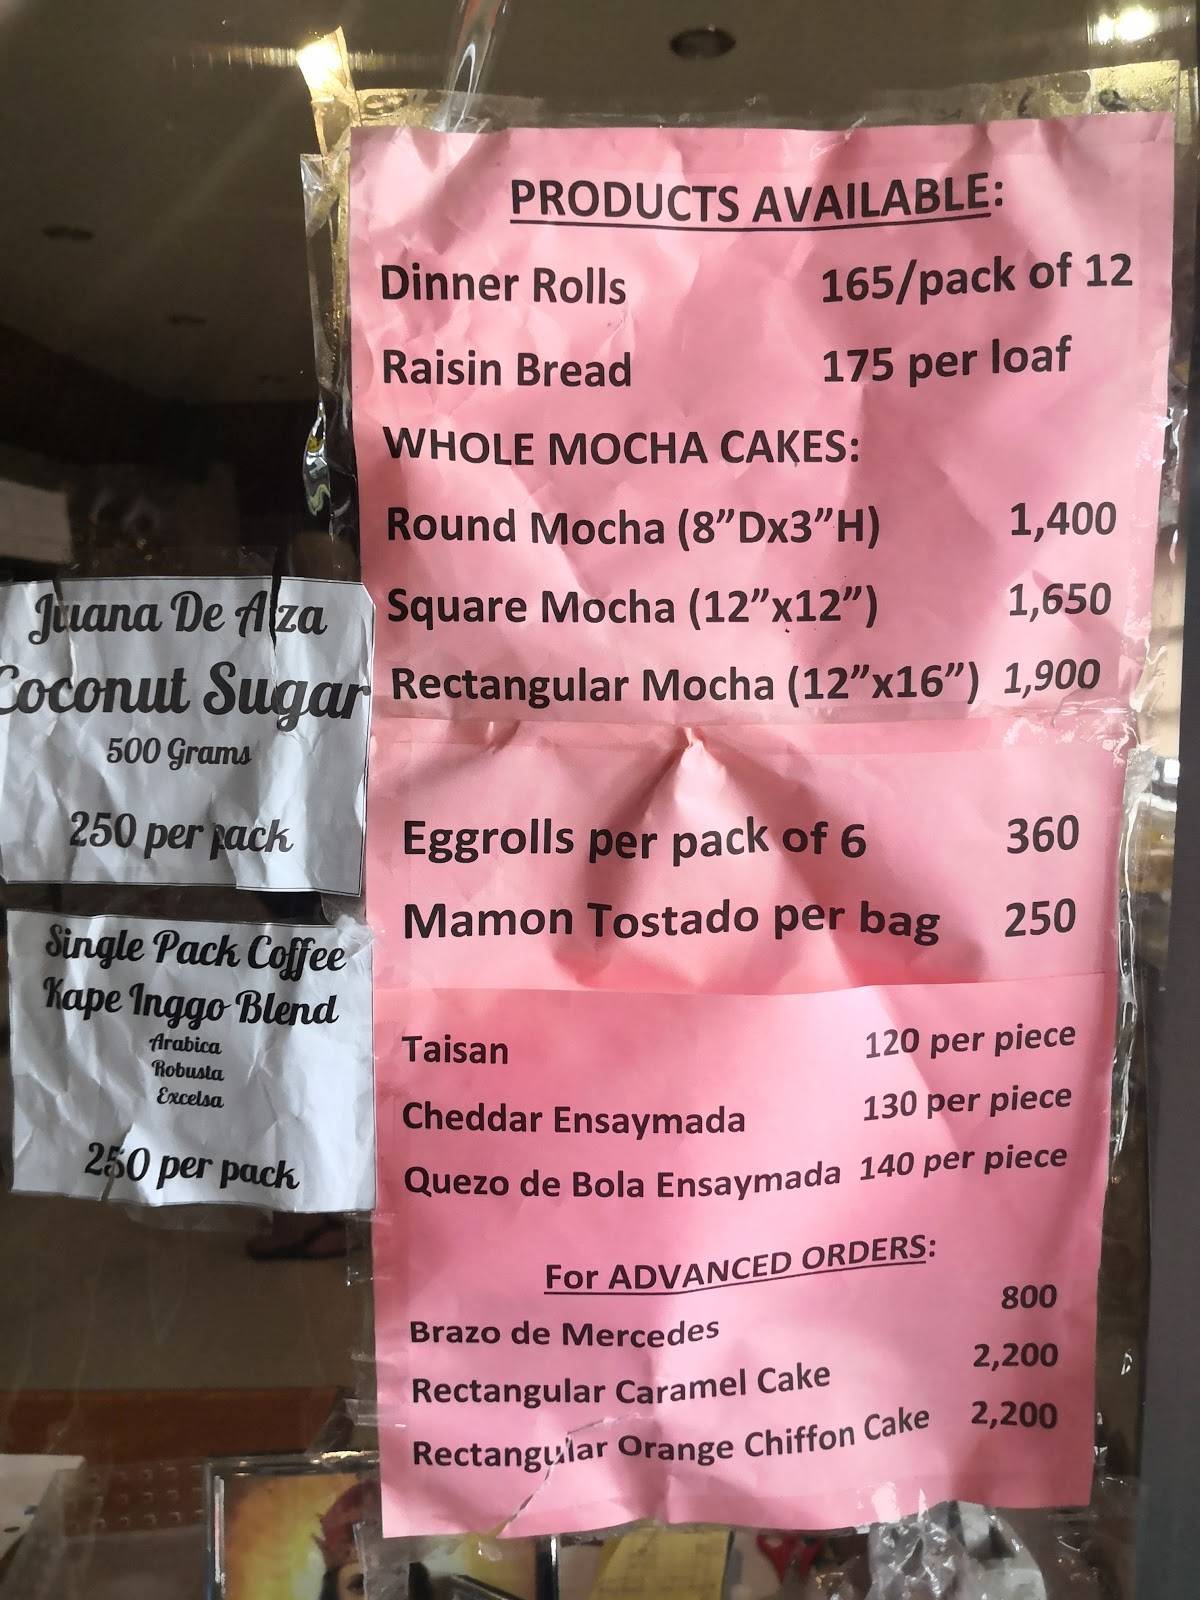 PRODUCTS AVAILABLE:
Dinner Rolls 165/pack of 12
Raisin Bread 175 per loaf
WHOLE MOCHA CAKES:
Round Mocha (8”Dx3”H) 1,400
Square Mocha (12”x12”) 1,650
Rectangular Mocha (12”x16”) 1,900
Eggrolls per pack of 6 360
Mamon Tostado per bag 250
Taisan 120 per piece
Cheddar Ensaymada 130 per piece
Quezo de Bola Ensaymada 140 per piece
For ADVANCED ORDERS:
Brazo de Mercedes 800
Rectangular Caramel Cake 2,200
Rectangular Orange Chiffon Cake 2,200
Juana De Alza
Coconut Sugar
500 Grams
250 per pack
Single Pack Coffee
Kape Inggo Blend
Arabica
Robusta
Excelsa
250 per pack